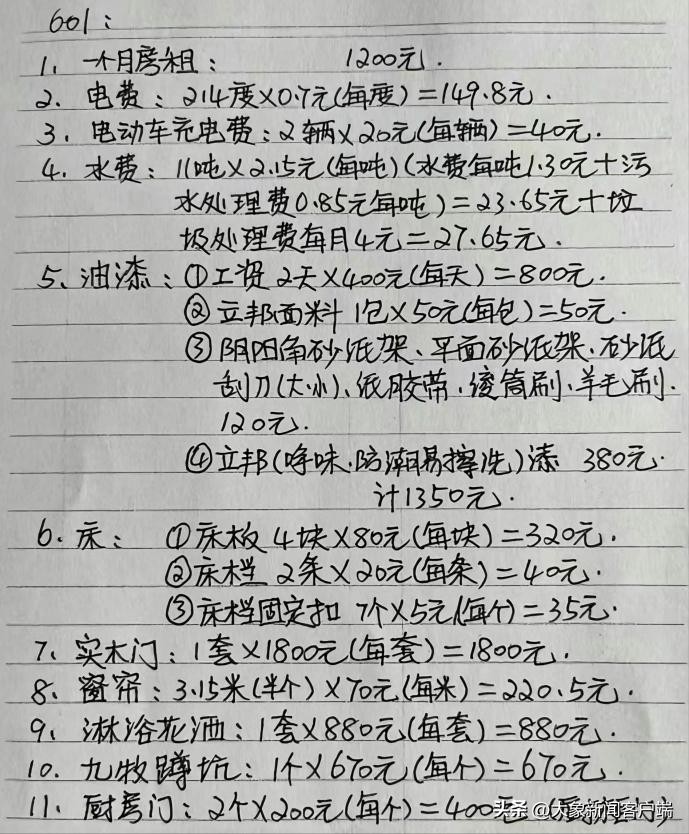 601：
1、一个月房租： 1200元．
2．电费：214度×0.7元(每度)＝149.8元．
3、电动车充电费：2辆×20元(每辆)＝40元．
4、水费：11吨×2.15元(每吨)(水费每吨1.30元＋污
水处理费0.85元每吨)＝23.65元＋垃
圾处理费每月4元＝27.65元．
5、油漆：①工资 2天×400元(每天)＝800元．
②立邦面料 1包×50元(每包)＝50元．
③阴阳角砂纸架、平面砂纸架．砂纸
刮刀(大．小)、纸胶带．滚筒刷．羊毛刷．
120元．
④立邦(净味．防潮易擦洗)漆 380元．
计1350元．
6．床： ①床板 4块×80元(每块)＝320元．
②床档 2条×20元(每条)＝40元．
③床档固定扣 7个×5元(每个)＝35元．
7、实木门：1套×1800元(每套)＝1800元．
8、窗帘：3.15米(半个)×70元(每米)＝220.5元．
9、淋浴花洒：1套×880元(每套)＝880元．
10．九牧蹲坑：1个×670元(每个)＝670元．
11．厨房门：2个×200元(每个)＝400元
头条 @大象新闻客户端